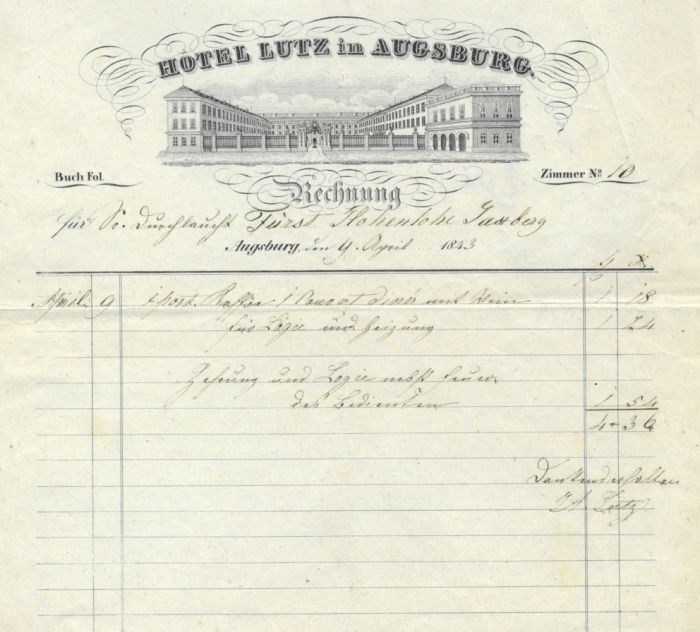 HÔTEL LUTZ in AUGSBURG.
Buch Fol.
Zimmer No 10
Rechnung
für Sr. Durchlaucht Fürst Hohenlohe Jaxtberg
Augsburg, den 9. April 1843
f x
April 9 1 Port. Kaffee 1 Couvert diner mit Wein 1 18
für Logie und Heizung 1 24
Zehrung und Logie nebst Feuer
des Bedienten 1 54
4 36
Dankend erhalten
Lutz